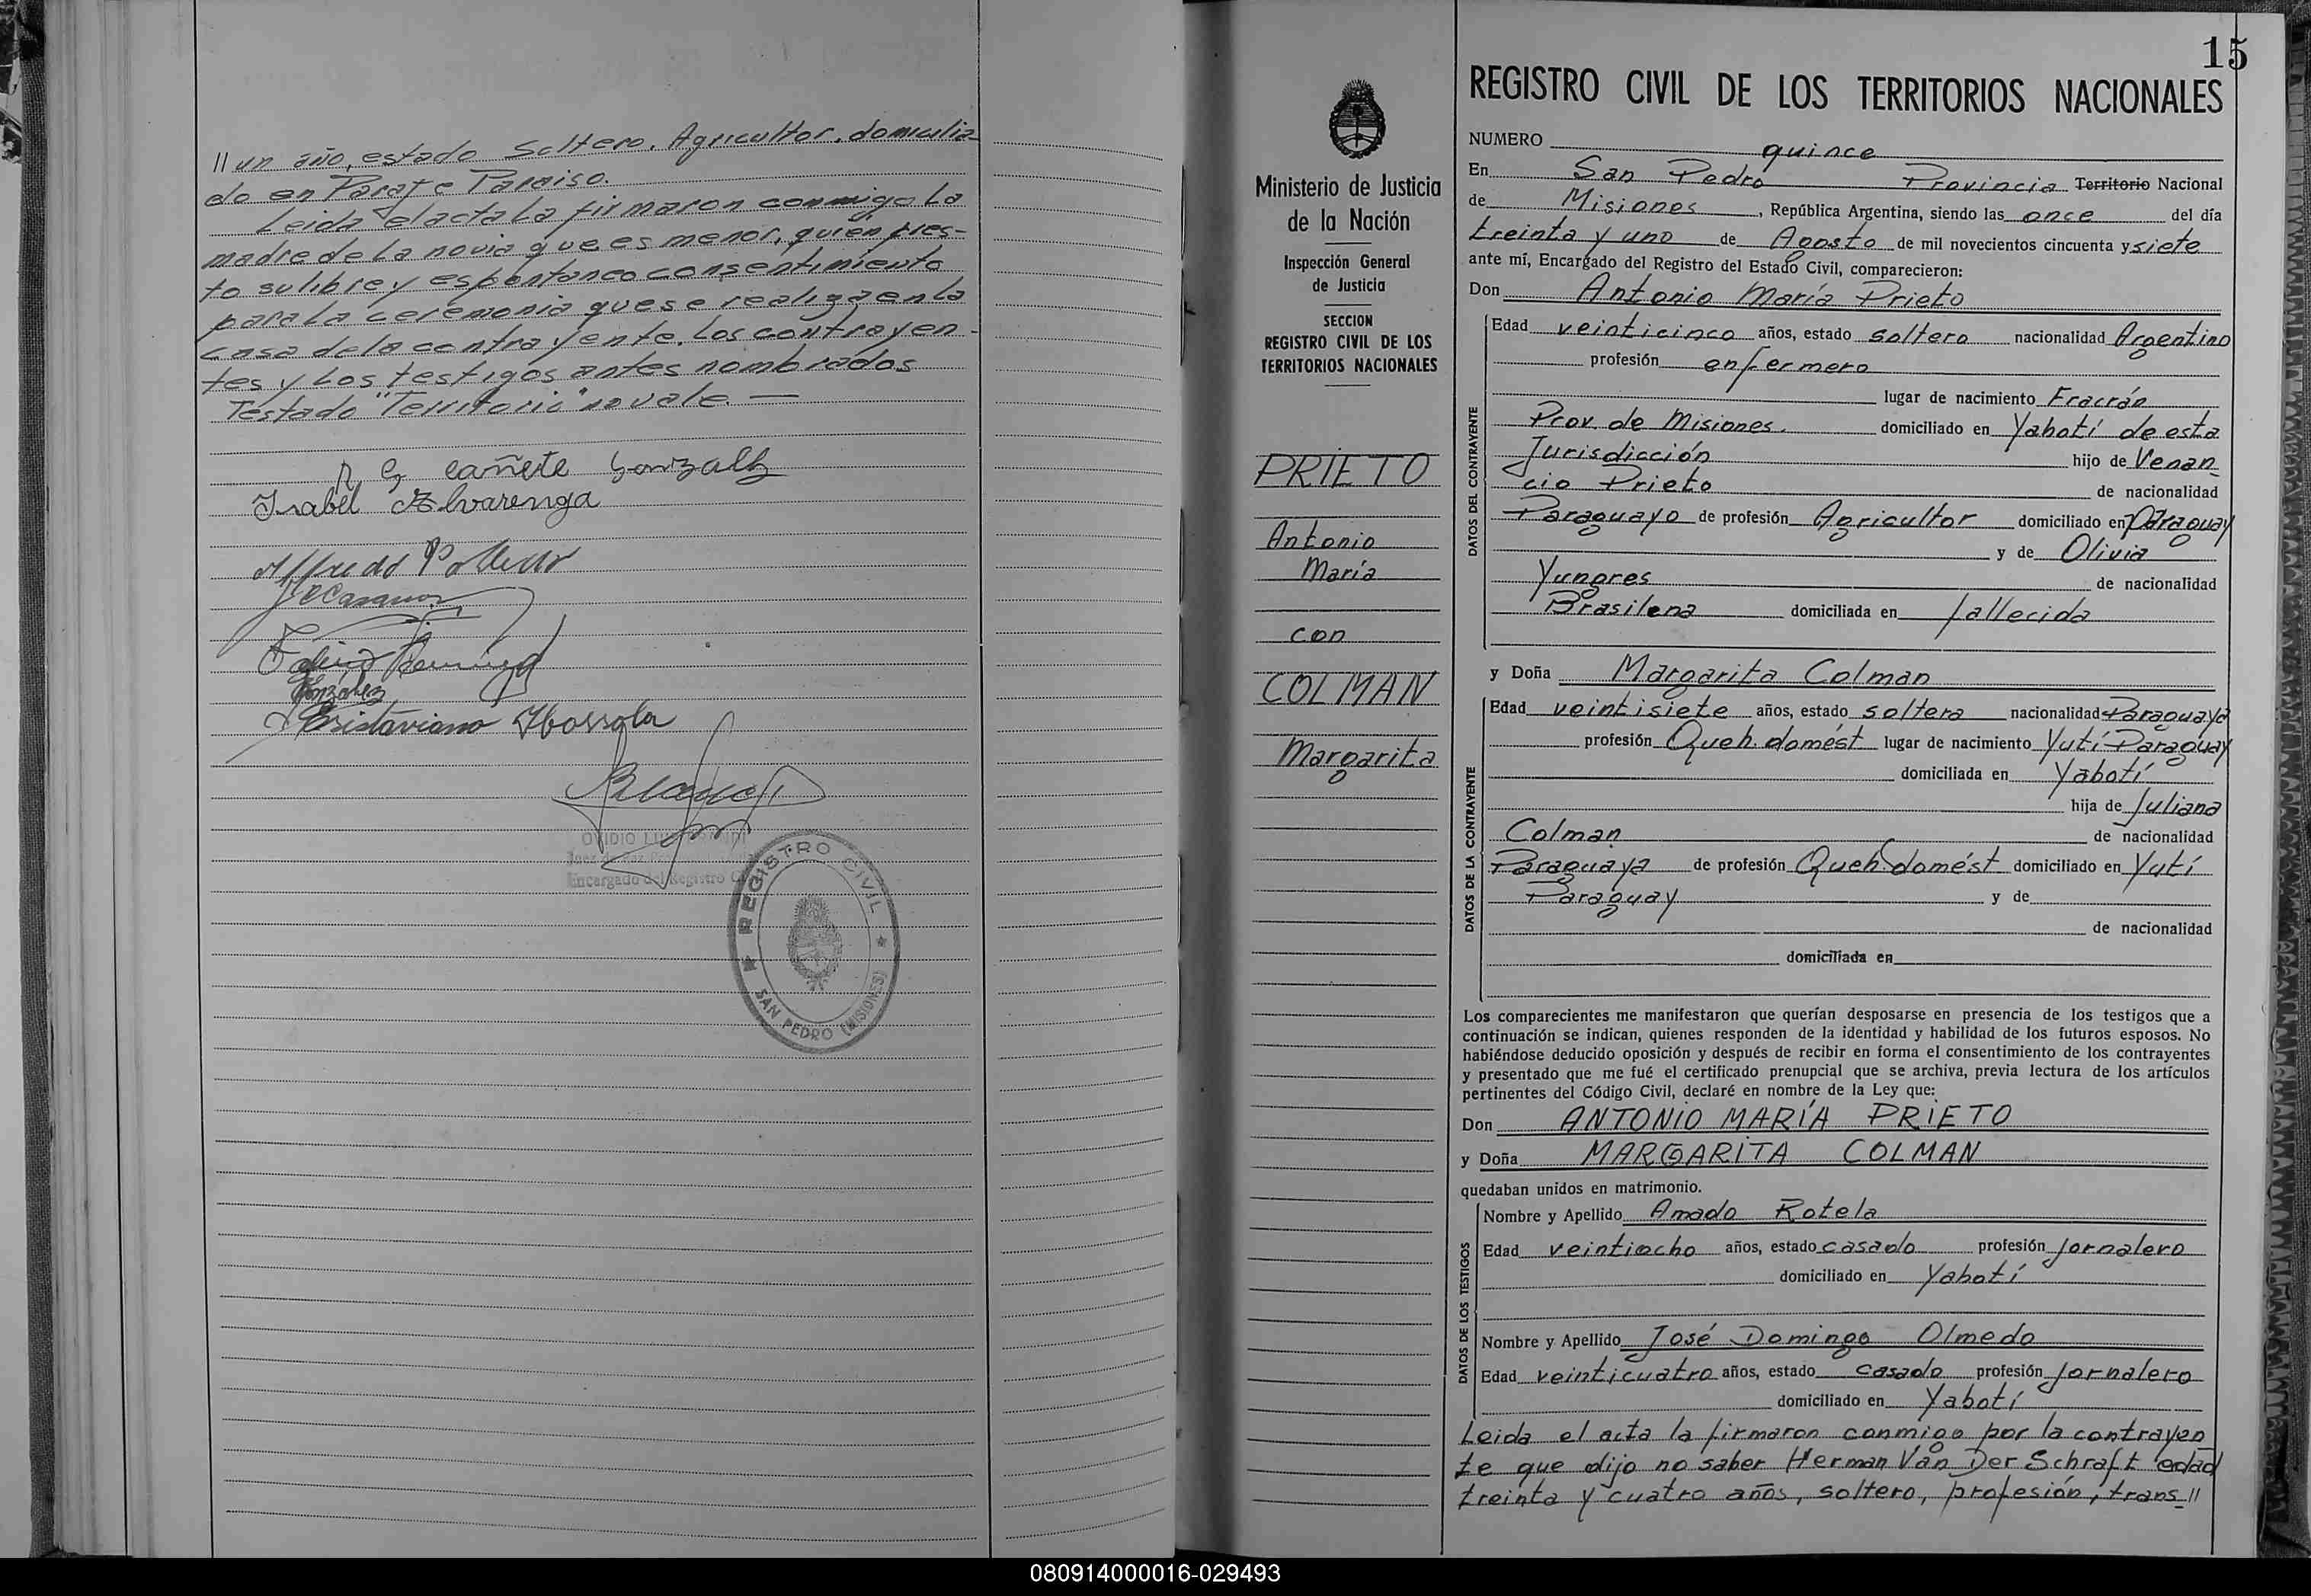 || un año, estado Soltero, Agricultor, domicilia-
do en Paraje Paraiso.
Leida el acta la firmaron conmigo la
madre de la novia que es menor, quien pres-
to su libre y espontaneo consentimiento
para la ceremonia que se realiza en la
casa de la contrayente, los contrayen-
tes y los testigos antes nombrados
Testado "Territorio" no vale. —
cañete Gonzalez
Isabel Alvarenga
Alfredo
González
OVIDIO
Encargado del Registro
REGISTRO CIVIL
SAN PEDRO (MISIONES)
Ministerio de Justicia
de la Nación
Inspección General
de Justicia
SECCION
REGISTRO CIVIL DE LOS
TERRITORIOS NACIONALES
PRIETO
Antonio
María
con
COLMAN
Margarita
15
REGISTRO CIVIL DE LOS TERRITORIOS NACIONALES
NUMERO quince
En San Pedro Provincia Territorio Nacional
de Misiones, República Argentina, siendo las once del día
treinta y uno de Agosto de mil novecientos cincuenta y siete
ante mí, Encargado del Registro del Estado Civil, comparecieron:
Don Antonio María Prieto
DATOS DEL CONTRAYENTE
Edad veinticinco años, estado soltero nacionalidad Argentino
profesión enfermero
lugar de nacimiento Fracrán
Prov. de Misiones. domiciliado en Yabotí de esta
Jurisdicción hijo de Venan-
cio Prieto de nacionalidad
Paraguayo de profesión Agricultor domiciliado en Paraguay
y de Olivia
Yungres de nacionalidad
Brasilena domiciliada en fallecida
y Doña Margarita Colman
DATOS DE LA CONTRAYENTE
Edad veintisiete años, estado soltera nacionalidad Paraguaya
profesión Queh. domést lugar de nacimiento Yutí-Paraguay
domiciliada en Yabotí
hija de Juliana
Colman de nacionalidad
Paraguaya de profesión Queh. domést domiciliado en Yutí
Paraguay y de
de nacionalidad
domiciliada en
Los comparecientes me manifestaron que querían desposarse en presencia de los testigos que a
continuación se indican, quienes responden de la identidad y habilidad de los futuros esposos. No
habiéndose deducido oposición y después de recibir en forma el consentimiento de los contrayentes
y presentado que me fué el certificado prenupcial que se archiva, previa lectura de los artículos
pertinentes del Código Civil, declaré en nombre de la Ley que:
Don ANTONIO MARÍA PRIETO
y Doña MARGARITA COLMAN
quedaban unidos en matrimonio.
DATOS DE LOS TESTIGOS
Nombre y Apellido Amado Rotela
Edad veintiocho años, estado casado profesión jornalero
domiciliado en Yabotí
Nombre y Apellido José Domingo Olmedo
Edad veinticuatro años, estado casado profesión jornalero
domiciliado en Yabotí
Leida el acta la firmaron conmigo por la contrayen
te que dijo no saber Herman Van Der Schraft edad
treinta y cuatro años, soltero, profesión, trans-||
080914000016-029493